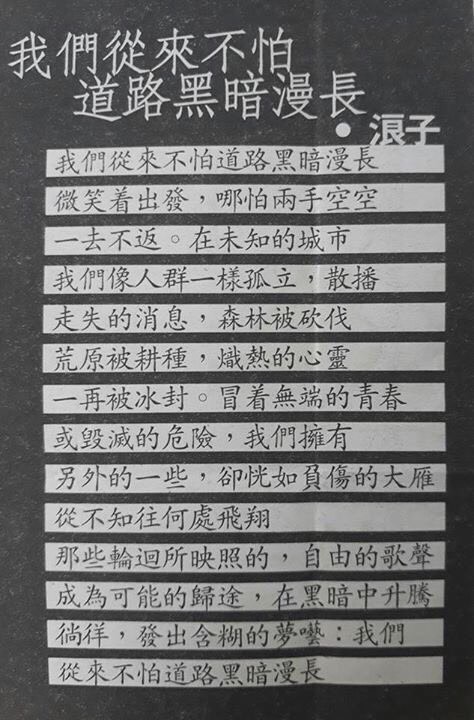 我們從來不怕
道路黑暗漫長
• 浪子
我們從來不怕道路黑暗漫長
微笑着出發，哪怕兩手空空
一去不返。在未知的城市
我們像人群一樣孤立，散播
走失的消息，森林被砍伐
荒原被耕種，熾熱的心靈
一再被冰封。冒着無端的青春
或毀滅的危險，我們擁有
另外的一些，卻恍如負傷的大雁
從不知往何處飛翔
那些輪迴所映照的，自由的歌聲
成為可能的歸途，在黑暗中升騰
徜徉，發出含糊的夢囈：我們
從來不怕道路黑暗漫長